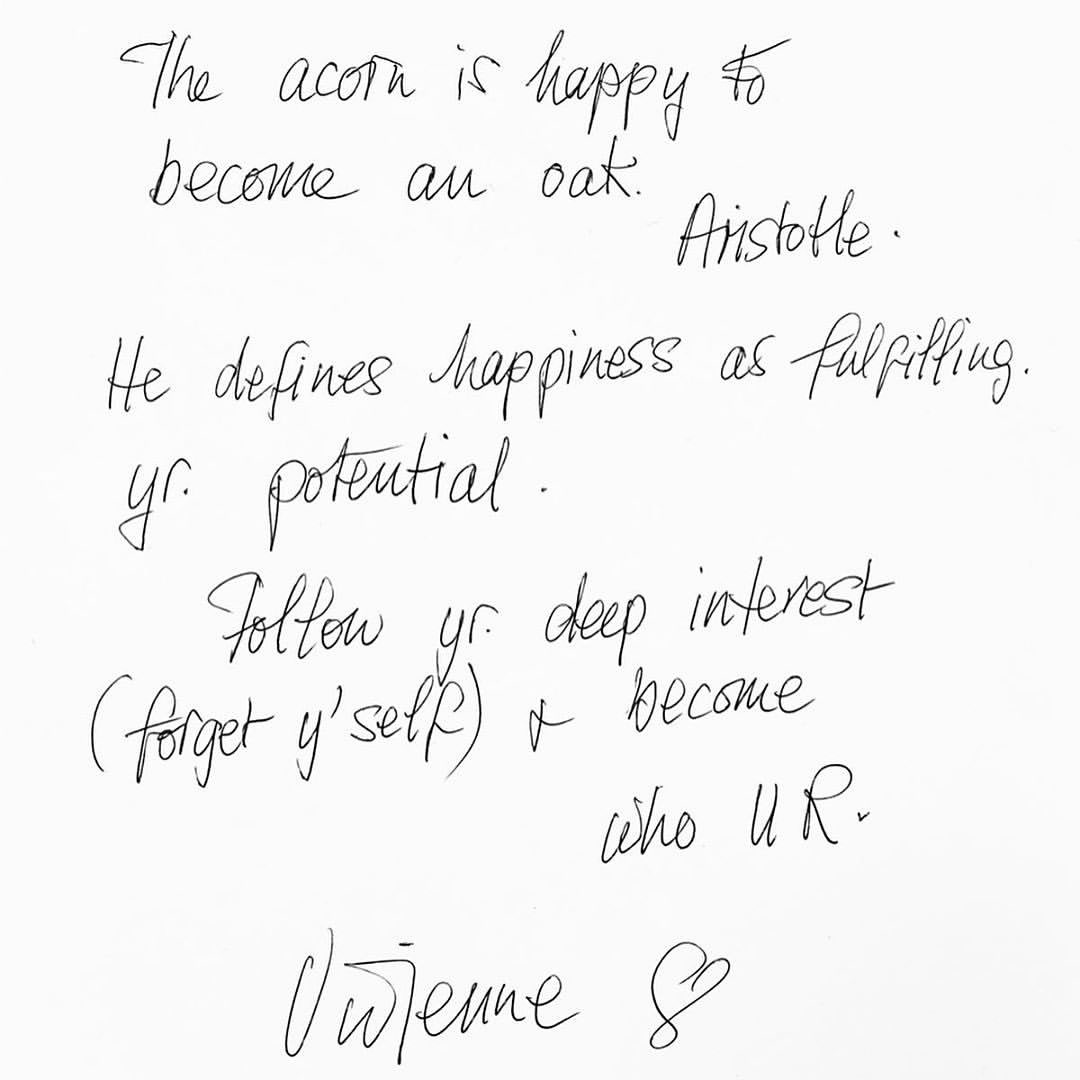 The acorn is happy to
become an oak.
Aristotle.
He defines happiness as fulfilling.
yr. potential.
Follow yr. deep interest
(forget y'self) & become
who U R.
Vivienne